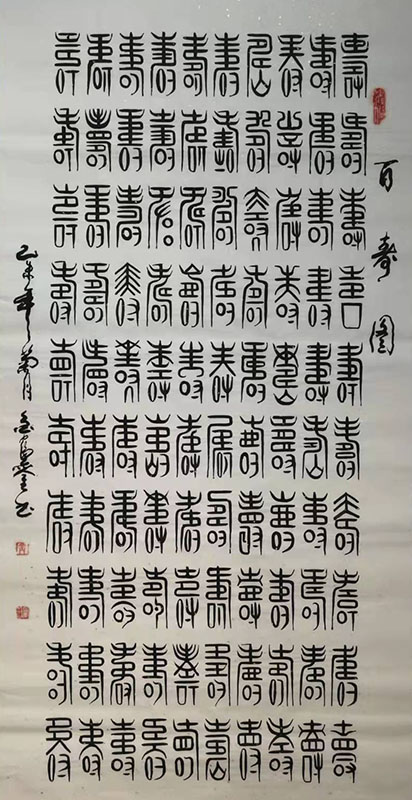 百壽圖
壽壽壽壽壽壽壽壽壽壽
壽壽壽壽壽壽壽壽壽壽
壽壽壽壽壽壽壽壽壽壽
壽壽壽壽壽壽壽壽壽壽
壽壽壽壽壽壽壽壽壽壽
壽壽壽壽壽壽壽壽壽壽
壽壽壽壽壽壽壽壽壽壽
壽壽壽壽壽壽壽壽壽壽
壽壽壽壽壽壽壽壽壽壽
壽壽壽壽壽壽壽壽壽壽
未年菊月書